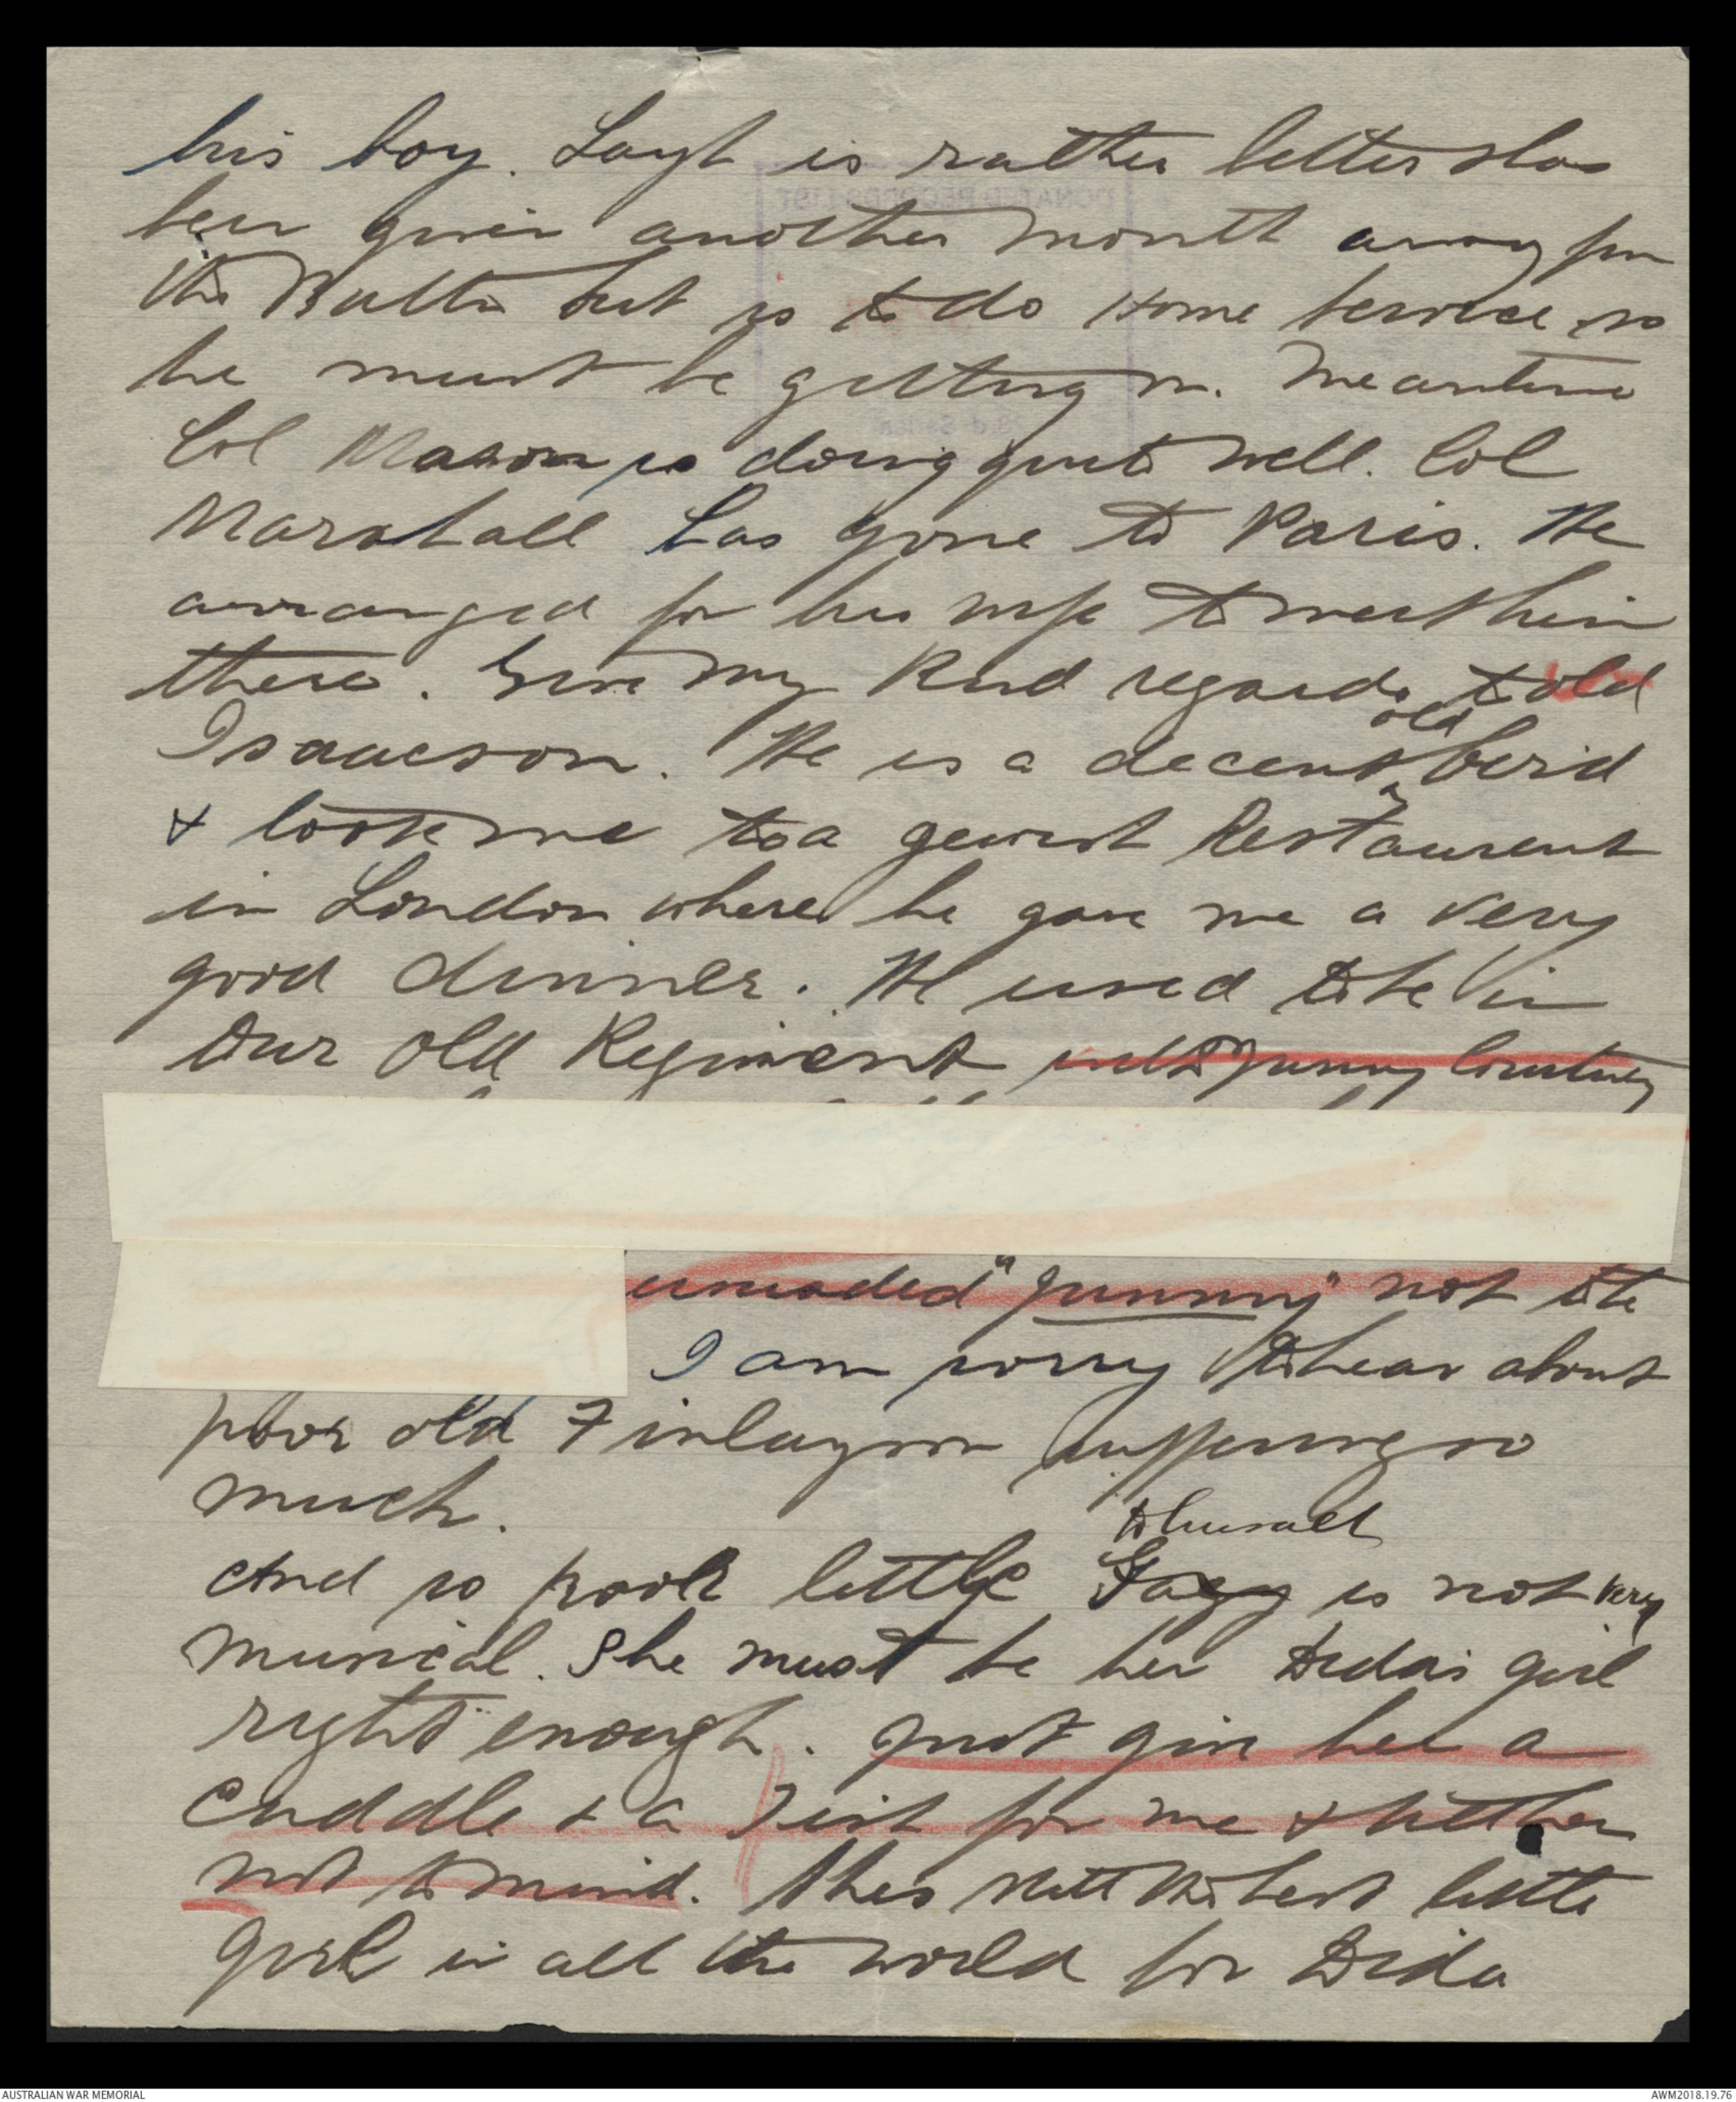 his boy. Layh is rather better & has
been given another month away from
the Battn but is to do Home Service so
he must be getting on. Meantime
Col Mason is doing quite well. Col
Marshall has gone to Paris. He
arranged for his wife to meet him
there. Give my kind regards to old
Isaacson. He is a decent old bird
& took me to a geewit Restaurent
in London where he gave me a very
good dinner. He used to be in
Our Old Regiment Jimmy Courtney
"Jimmy" not to be
I am sorry to hear about
poor old Finlayson suffering so
much.
And so poor little Jacy is not very
musical. She must be her Dida's girl
right enough. Just give her a
cuddle & a for me & tell her
not to mind. Shes still the best little
girl in all the world for Dida
AUSTRALIAN WAR MEMORIAL
AWM2018.19.76